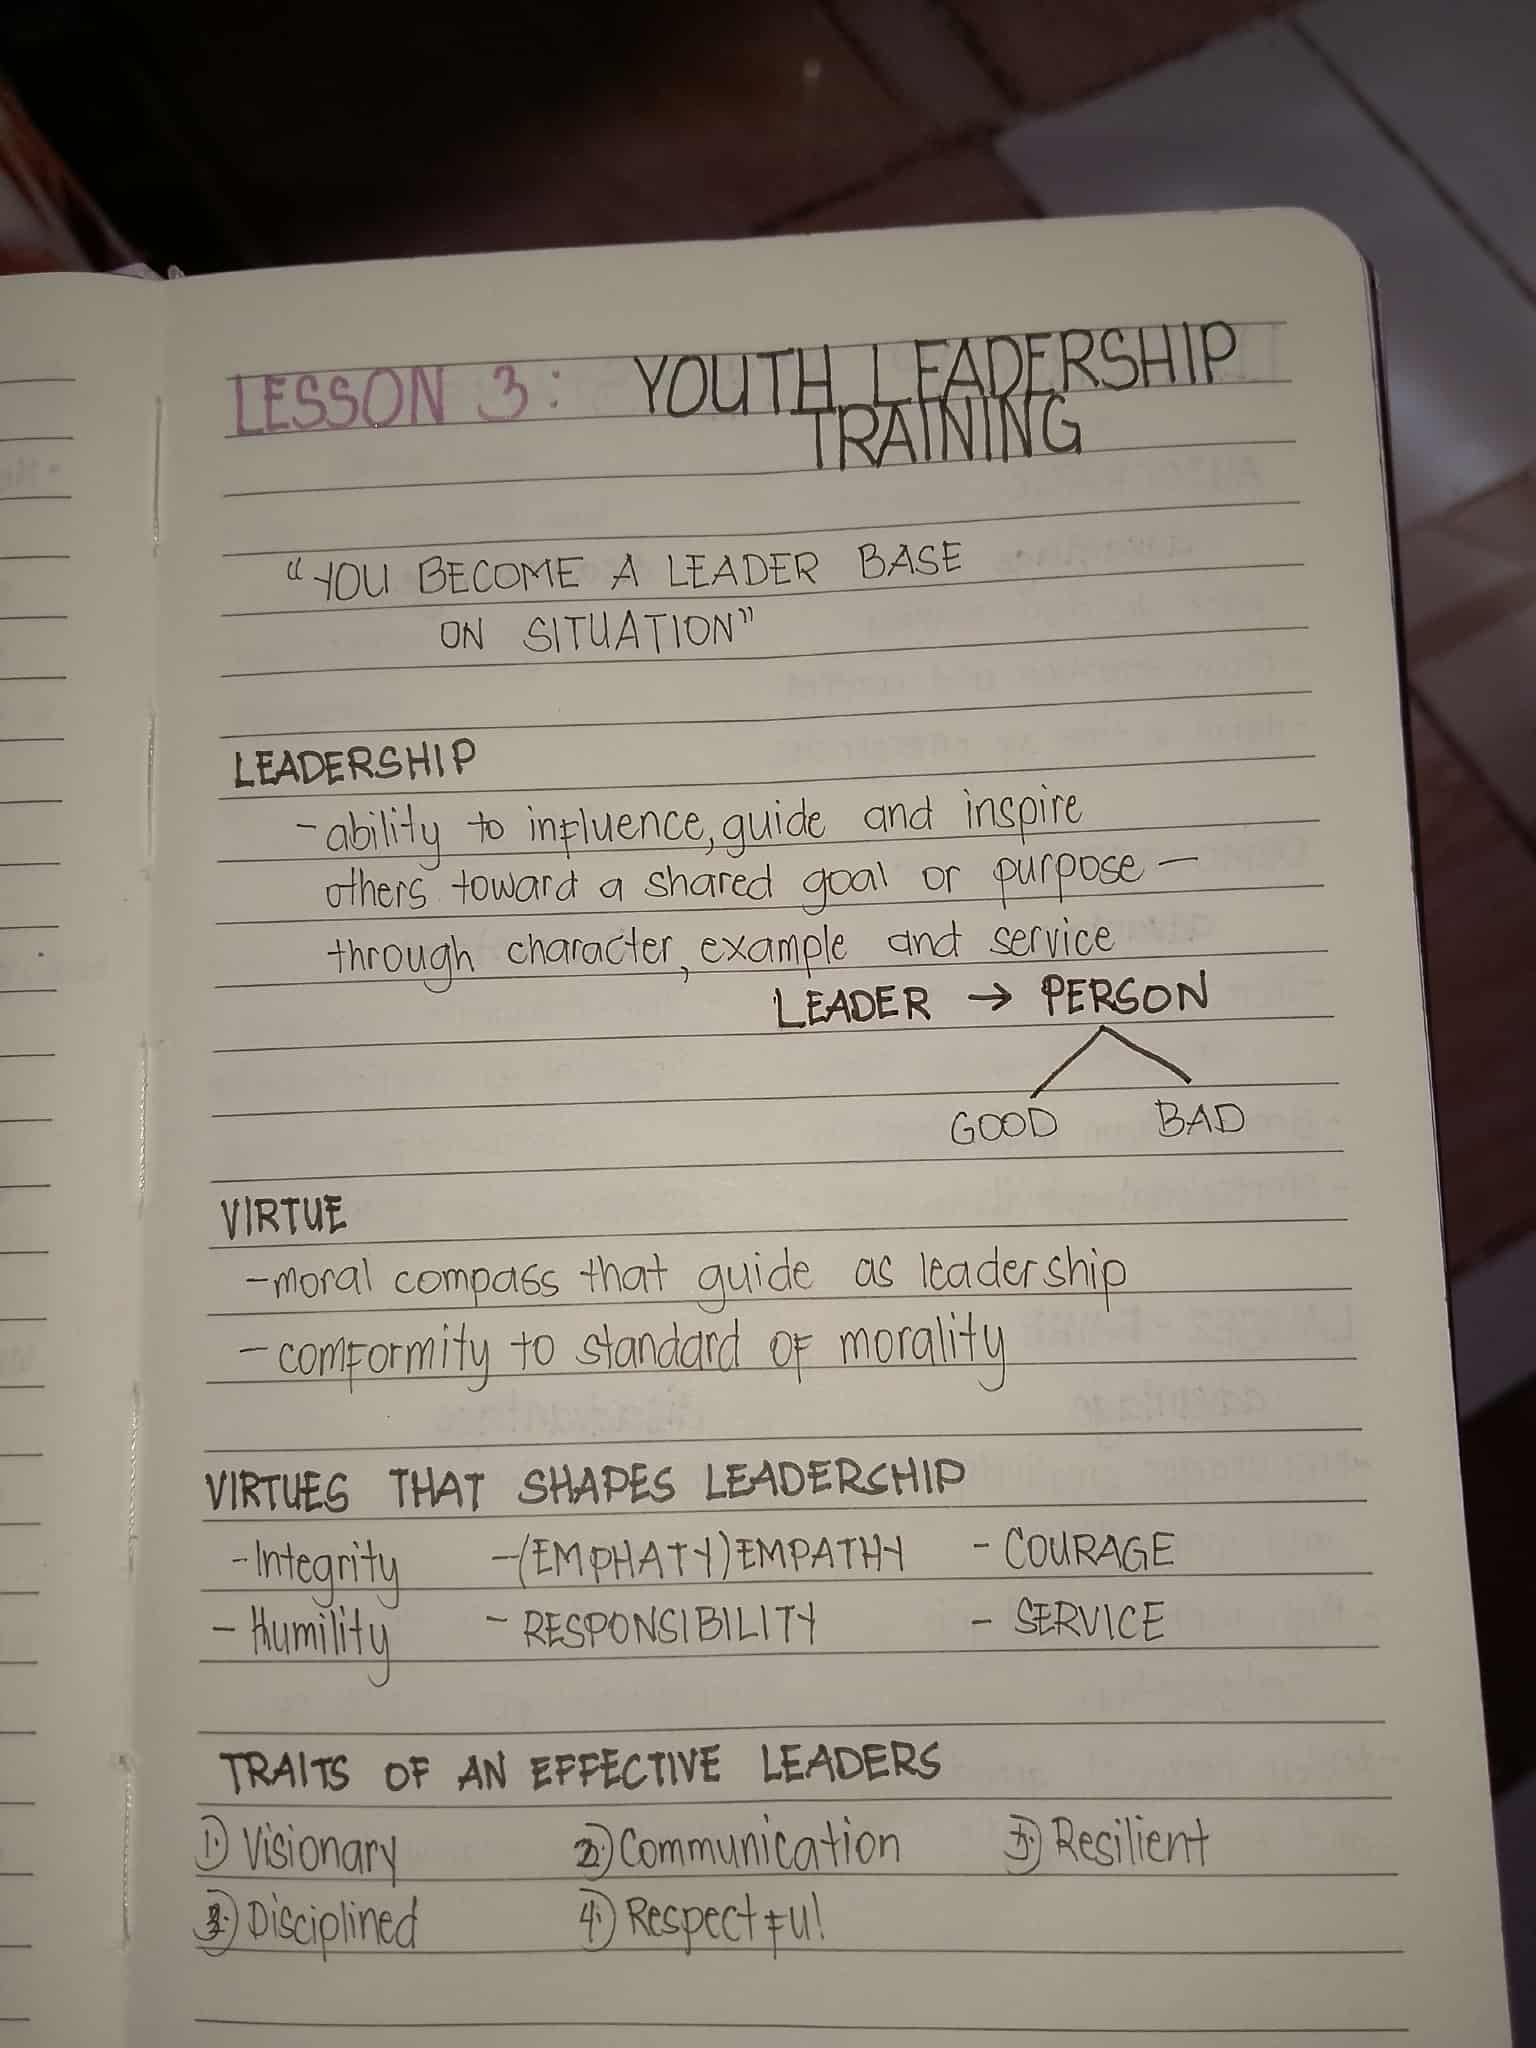 LESSON 3: YOUTH LEADERSHIP
TRAINING
"YOU BECOME A LEADER BASE
ON SITUATION"
LEADERSHIP
- ability to influence, guide and inspire
others toward a shared goal or purpose —
through character, example and service
LEADER → PERSON
GOOD BAD
VIRTUE
- moral compass that guide as leadership
- comformity to standard of morality
VIRTUES THAT SHAPES LEADERSHIP
- Integrity - (EMPHATY) EMPATHY - COURAGE
- Humility - RESPONSIBILITY - SERVICE
TRAITS OF AN EFFECTIVE LEADERS
1.) Visionary 2.) Communication 5.) Resilient
3.) Disciplined 4.) Respectful